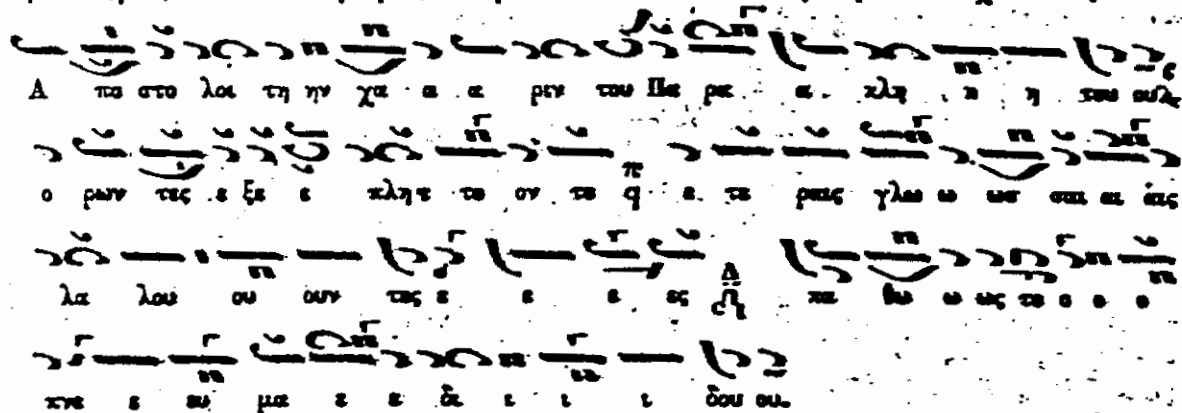 Α πο στο λοι τη ην χα α α ριν του Πα ρα α κλη η η του ουλε
ο ρων τες ε ξε ε πλητ το ον το π q ε τε ραις γλω ω ωσ σαι αι αις
λα λου ου ουν τες ε ε ε ες Δ κα θω ω ως το ο ο ο
πνε ε ευ μα ε ε δι ι ι ι δου ου.